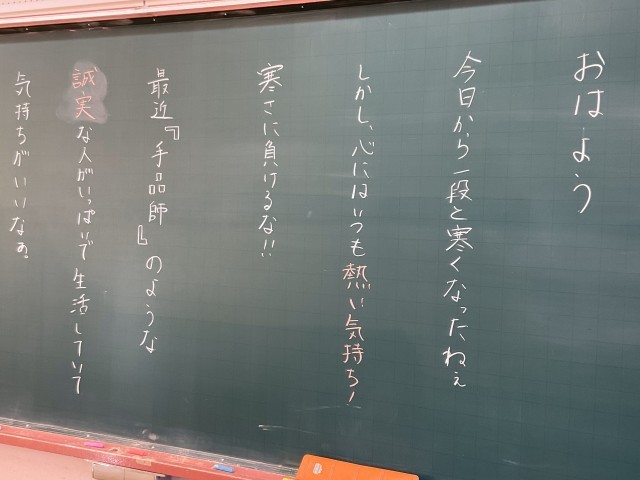 おはよう
今日から一段と寒くなったねぇ
しかし、心にはいつも熱い気持ち!
寒さに負けるな!!
最近『手品師』のような
誠実な人がいっぱいで生活していて
気持ちがいいなぁ。